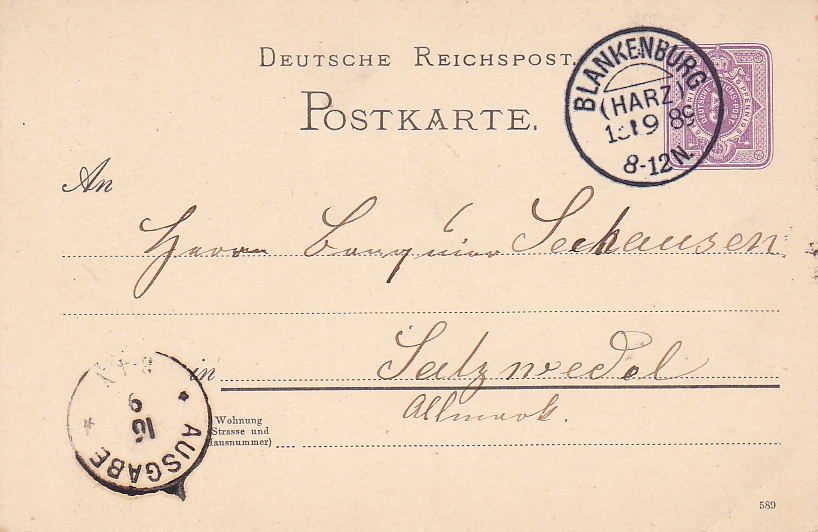 DEUTSCHE REICHSPOST.
POSTKARTE.
BLANKENBURG
(HARZ)
9 89
8-12N.
DEUTSCHE REICHS-POST
An
Herrn Banquier Seehausen
in Salzwedel
Altmark.
Wohnung
(Strasse und
Hausnummer)
AUSGABE
16
9
589